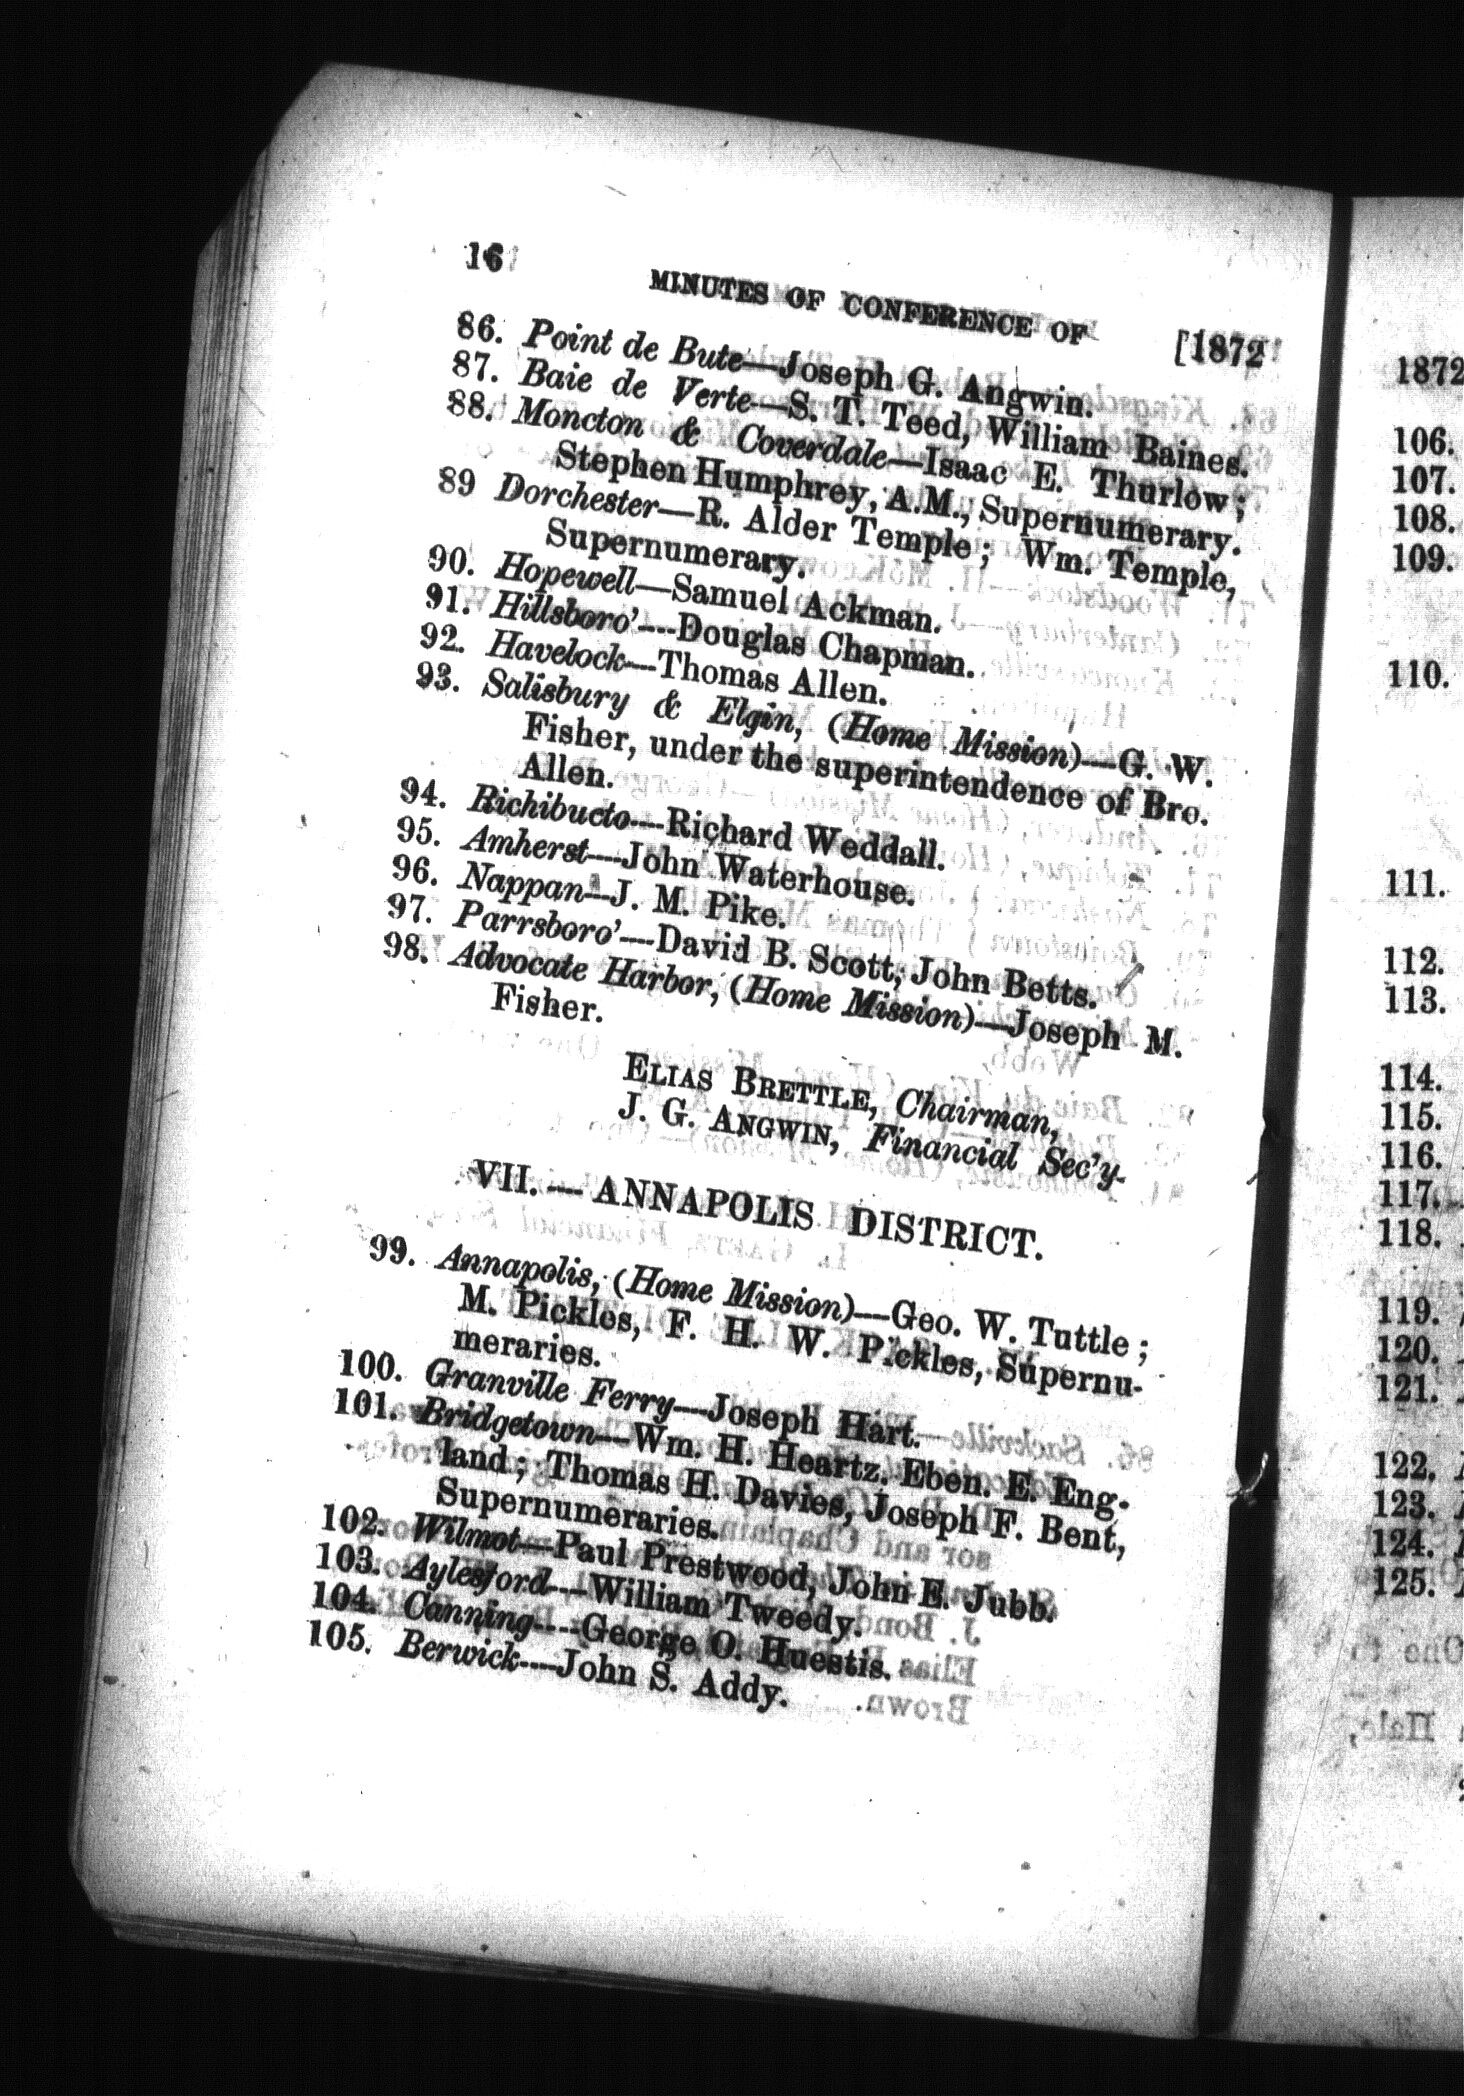 16 MINUTES OF CONFERENCE OF [1872
86. Point de Bute—Joseph G. Angwin.
87. Baie de Verte—S. T. Teed, William Baines.
88. Moncton & Coverdale—Isaac E. Thurlow;
Stephen Humphrey, A.M., Supernumerary.
89 Dorchester—R. Alder Temple; Wm. Temple,
Supernumerary.
90. Hopewell—Samuel Ackman.
91. Hillsboro'—Douglas Chapman.
92. Havelock—Thomas Allen.
93. Salisbury & Elgin, (Home Mission)—G. W.
Fisher, under the superintendence of Bro.
Allen.
94. Richibucto—Richard Weddall.
95. Amherst—John Waterhouse.
96. Nappan—J. M. Pike.
97. Parrsboro'—David B. Scott, John Betts.
98. Advocate Harbor, (Home Mission)—Joseph M.
Fisher.
ELIAS BRETTLE, Chairman,
J. G. ANGWIN, Financial Sec'y.
VII. — ANNAPOLIS DISTRICT.
99. Annapolis, (Home Mission)—Geo. W. Tuttle;
M. Pickles, F. H. W. Pickles, Supernu-
meraries.
100. Granville Ferry—Joseph Hart.
101. Bridgetown—Wm. H. Heartz. Eben. E. Eng-
land; Thomas H. Davies, Joseph F. Bent,
Supernumeraries.
102. Wilmot—Paul Prestwood, John E. Jubb.
103. Aylesford—William Tweedy.
104. Canning—George O. Huestis.
105. Berwick—John S. Addy.
1872
106.
107.
108.
109.
110.
111.
112.
113.
114.
115.
116.
117.
118.
119.
120.
121.
122.
123.
124.
125.